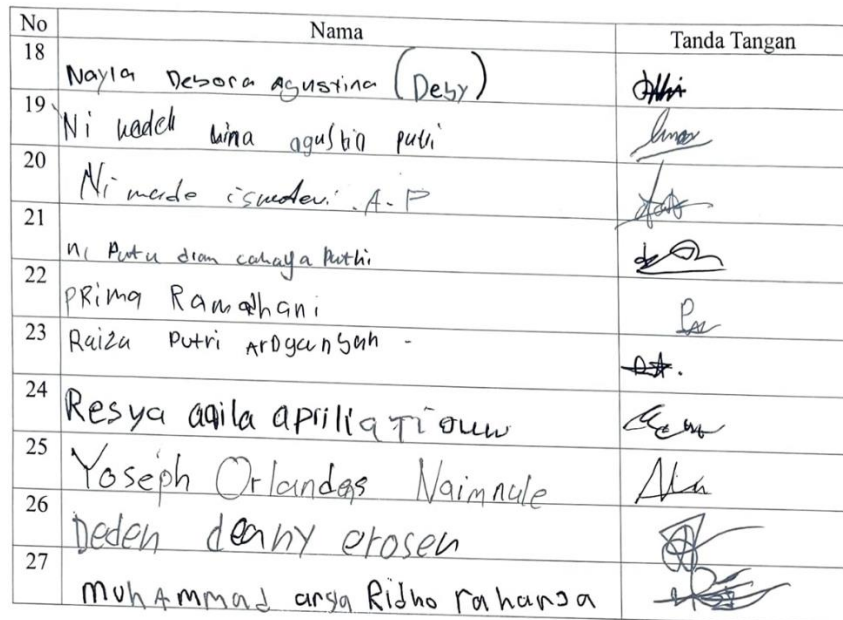 No Nama Tanda Tangan
18 Nayla Debora Agustina (Deby)
19 Ni kadek agustin putri
20 Ni made ismadevi. A.P
21 ni Putu dian cahaya Puthi
22 PRima Ramadhani
23 Raiza Putri Ardyansah -
24 Resya aqila
25 Yoseph Orlandes Naimnule
26 Deden denny erosen
27 muhAmmad arya Ridho rahansa